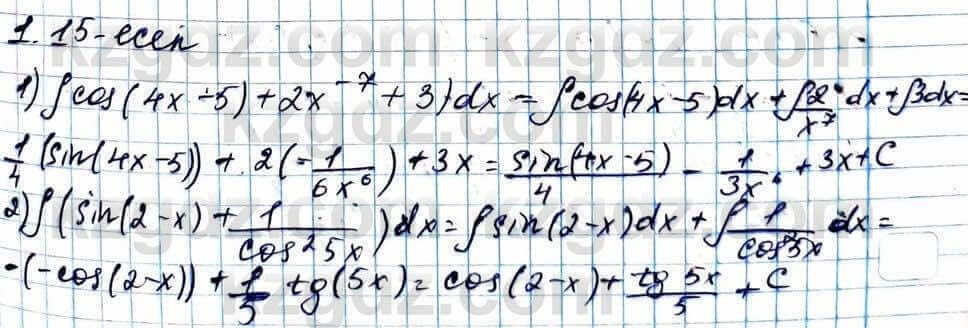 1.15-есеп
1) ∫cos(4x-5)+2x^-7+3)dx=∫cos(4x-5)dx+∫2/x^7 dx+∫3dx=
1/4 (sin(4x-5))+2(-1/6x^6)+3x=sin(4x-5)/4 - 1/3x^6 +3x+C
2)∫(sin(2-x)+1/cos²5x)dx=∫sin(2-x)dx+∫1/cos²5x dx=
-(-cos(2-x))+1/5 tg(5x)=cos(2-x)+tg 5x/5 +C
kzgdz.com